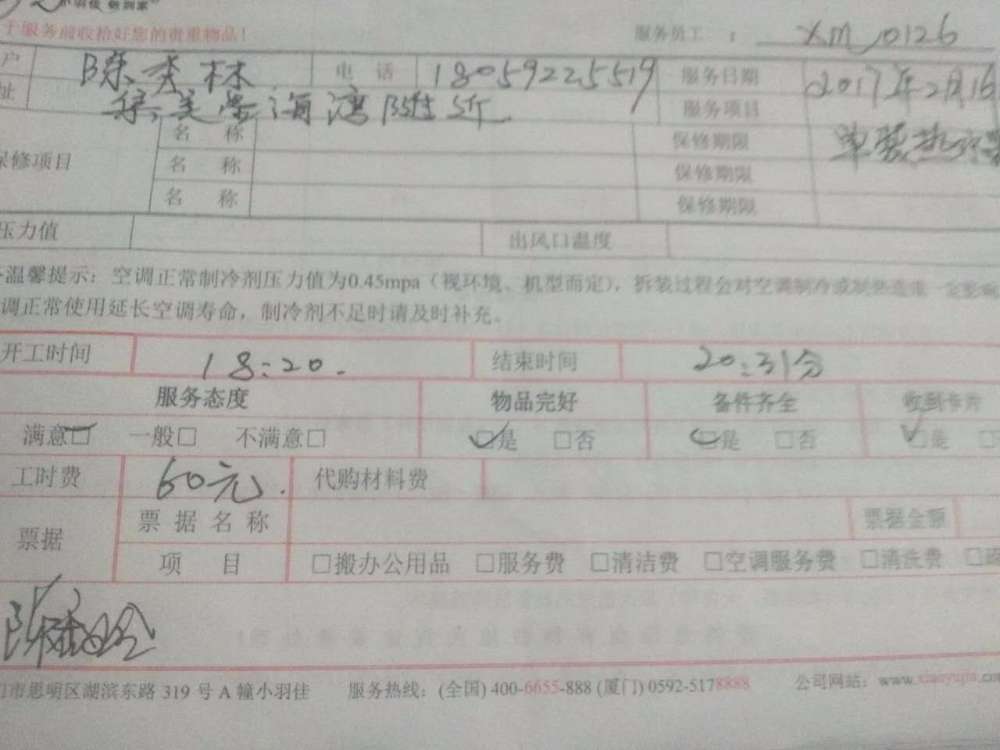 于服务前收拾好您的贵重物品！ 服务员工 ： XM 0126
户 陈秀林 电 话 18059225519 服务日期 2017年2月16
址 海湾附近 服务项目
保修项目 名 称 保修期限
名 称 保修期限
名 称 保修期限
压力值 出风口温度
温馨提示：空调正常制冷剂压力值为0.45mpa（视环境、机型而定），拆装过程会对空调制冷或制热造成一定影响
调正常使用延长空调寿命，制冷剂不足时请及时补充。
开工时间 18:20. 结束时间 20:31分
服务态度 物品完好 备件齐全 收到卡片
满意☑ 一般□ 不满意□ ☑是 □否 ☑是 □否 ☑是 □
工时费 60元. 代购材料费
票据 票 据 名 称 票据金额
项 目 □搬办公用品 □服务费 □清洁费 □空调服务费 □清洗费
门市思明区湖滨东路 319 号 A 幢小羽佳 服务热线：(全国) 400-6655-888 (厦门) 0592-5178888 公司网站：www.xiaoyujia.com